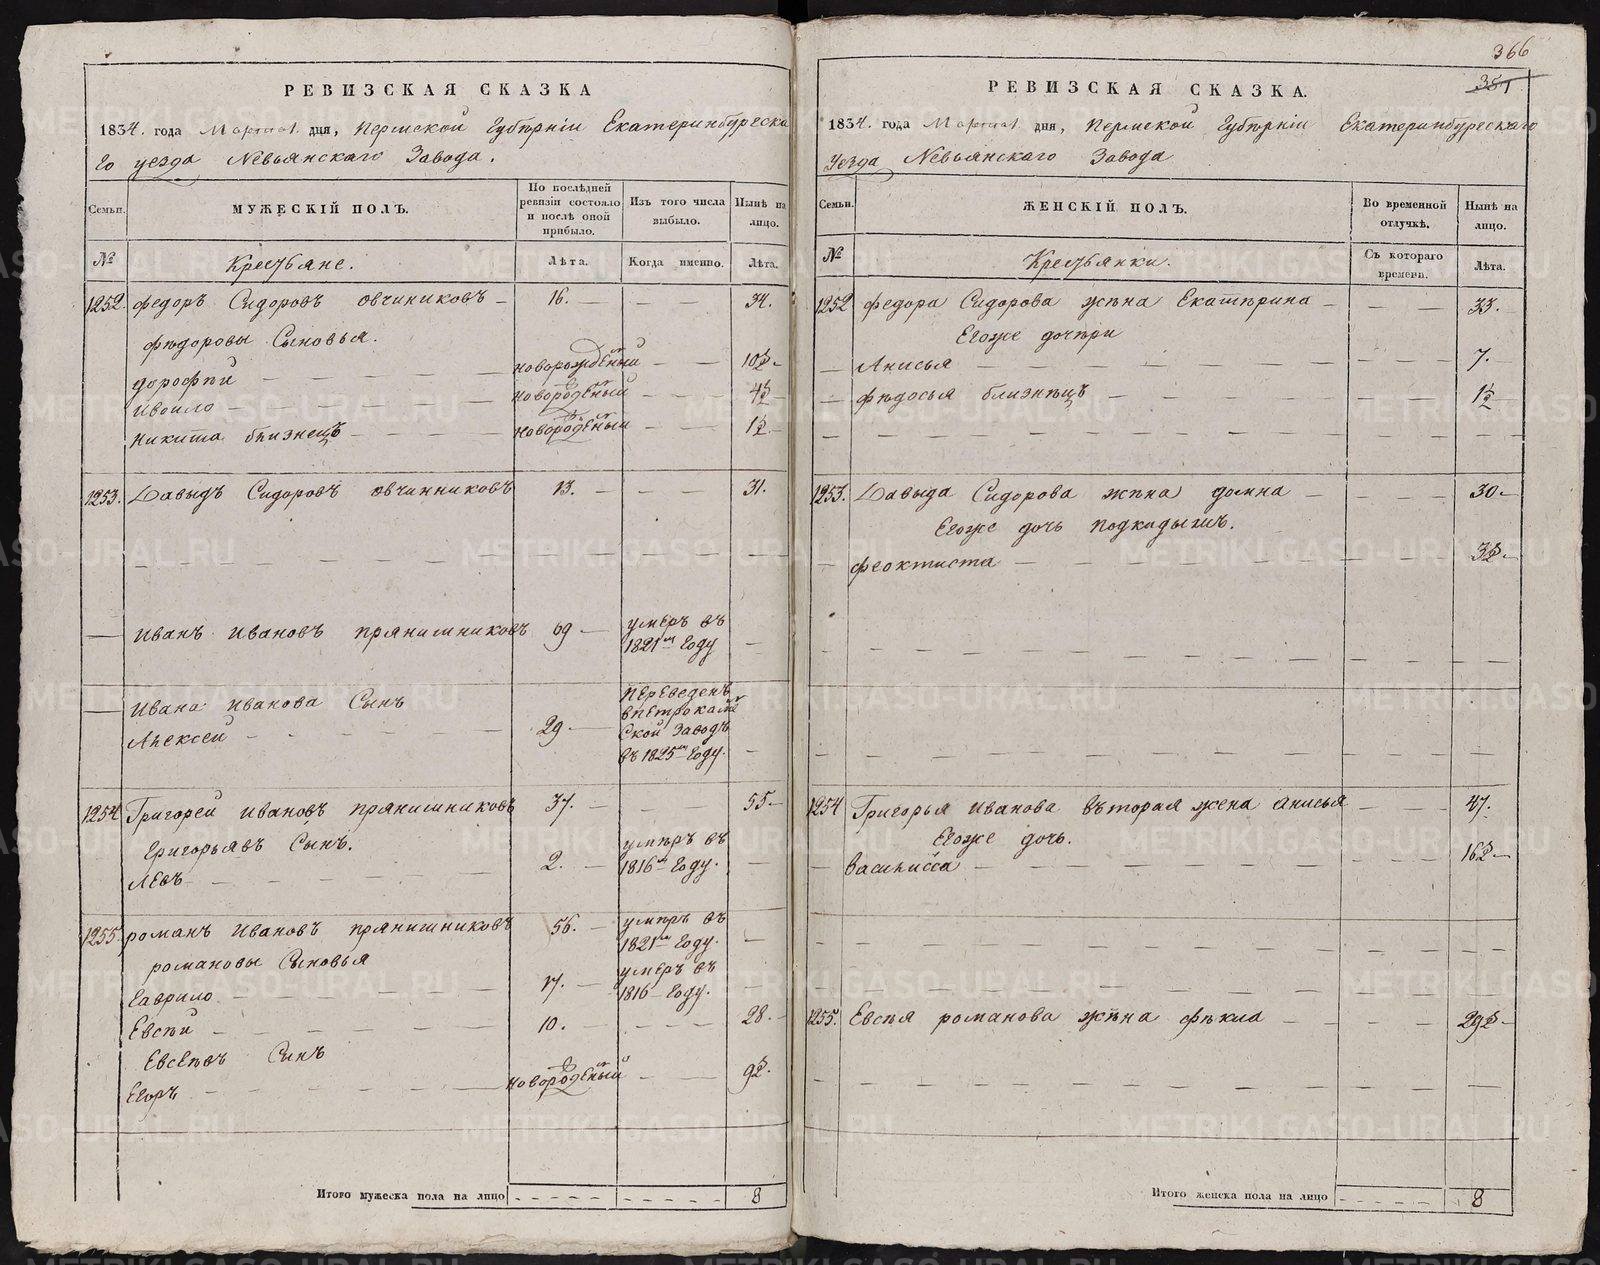 РЕВИЗСКАЯ СКАЗКА
1834. года Марта дня, Пермской Губѣрніи Екатеринбурска
го уезда Невьянскаго Завода.
Семьи.
МУЖЕСКІЙ ПОЛЪ.
По послѣдней ревизіи состояло и послѣ оной прибыло.
Изъ того числа выбыло.
Нынѣ на лицо.
№
Крестьяне.
Лѣта.
Когда именно.
Лѣта.
1252. федоръ Сидоровъ овчиниковъ 16. 34.
фѣдоровы Сыновья.
дорофѣй новорожденый 10½
Ивоило новороденый 4½
никита близнецъ новороденый 1½
1253. Давыдъ Сидоровъ овчинниковъ 13. 31.
иванъ ивановъ прянишниковъ 69 умеръ въ 1821м году
ивана иванова Сынъ
Алексей 29. переведенъ впетрокаменской Заводъ въ 1825м году.
1254 Григорей ивановъ прянишниковъ 37. 55.
григорьявъ Сынъ.
левъ 2. умѣръ въ 1816м году.
1255 романъ ивановъ прянишниковъ 56. умѣръ въ 1821м году.
романовы Сыновья
гаврило 17. умеръ въ 1816 году.
Евсѣй 10. 28.
Евсеѣвъ Сынъ
Егоръ новороденый 9½.
Итого мужеска пола на лицо 8
366
381
РЕВИЗСКАЯ СКАЗКА.
1834. года Марта дня, Пермской Губѣрніи Екатеринбурскаго
Уезда Невьянскаго Завода
Семьи.
ЖЕНСКІЙ ПОЛЪ.
Во временной отлучкѣ.
Нынѣ на лицо.
№
Крестьянки.
Съ котораго времени.
Лѣта.
1252 федора Сидорова жѣна Екатѣрина 33.
Егоже дочѣри
Анисья 7.
фѣдосья близнѣцъ 1½
1253. Давыда Сидорова жѣна домна 30.
Егоже дочь подкидышъ.
феоктиста 3½
1254 Григорья иванова въторая жена анисья 47.
Егоже дочь.
василисса 16½
1255. Евсѣя романова жѣна фѣкла 29½
Итого женска пола на лицо 8
METRIKI.GASO-URAL.RU